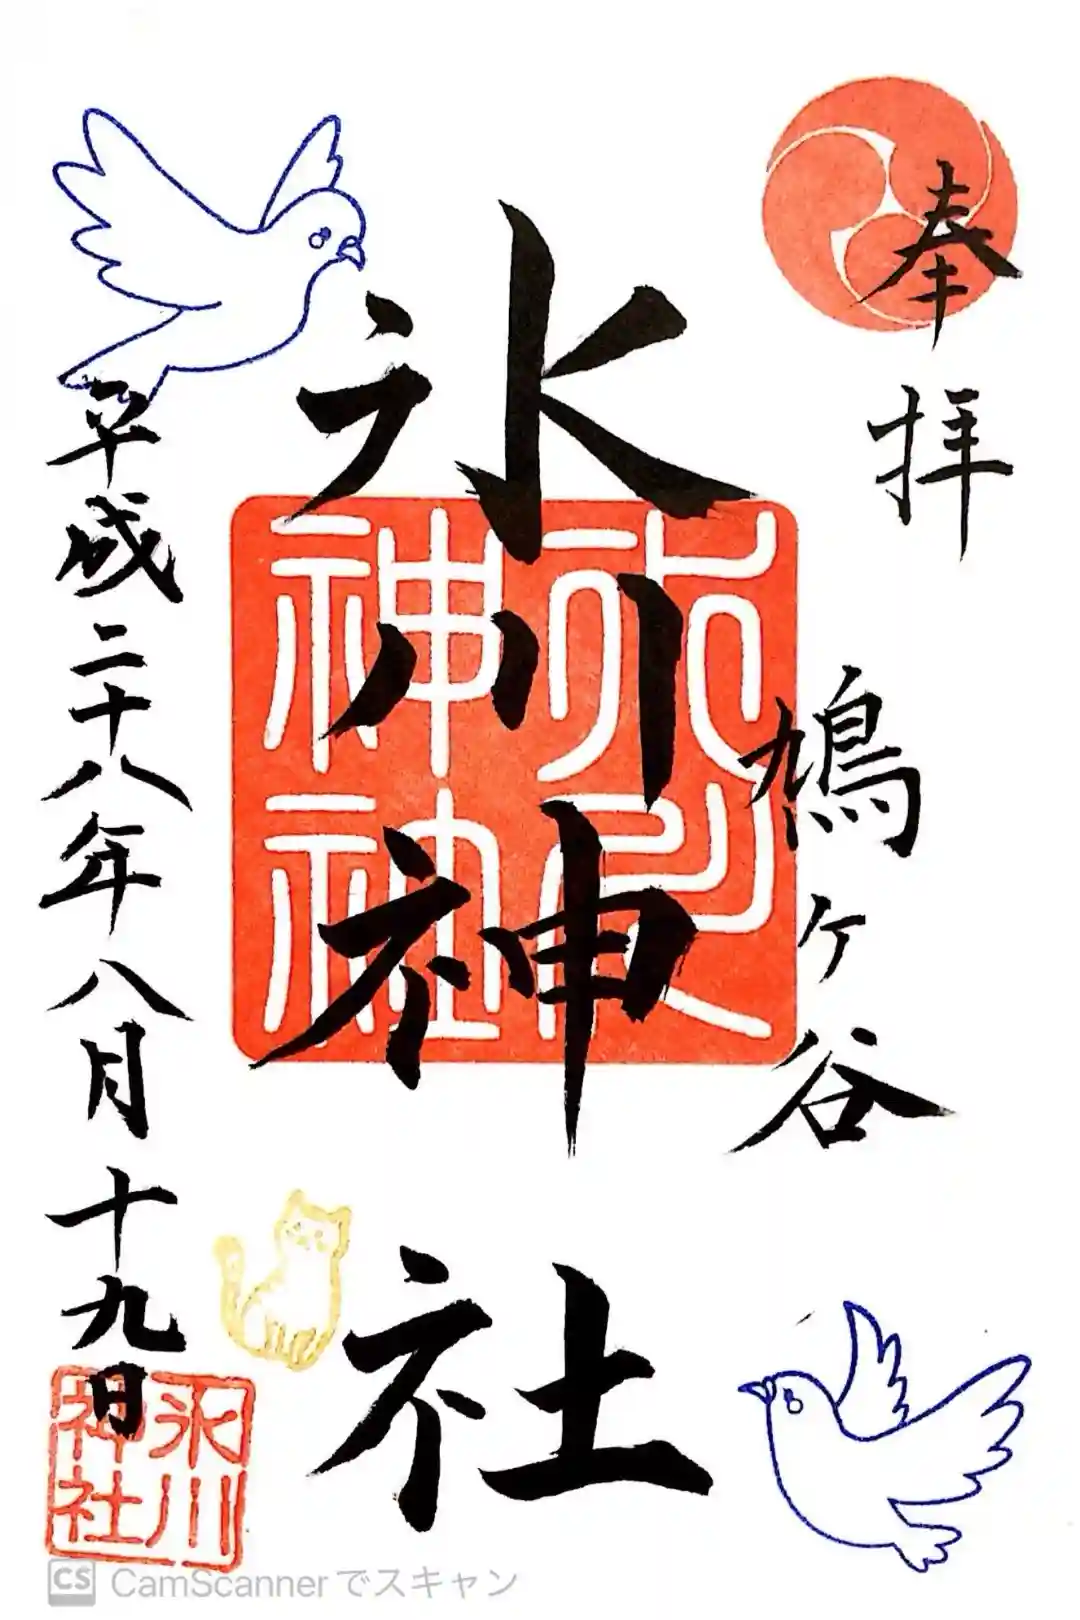 奉拝
鳩ヶ谷
氷川神社
氷川神社
平成二十八年八月十九日
氷川神社
CS CamScannerでスキャン